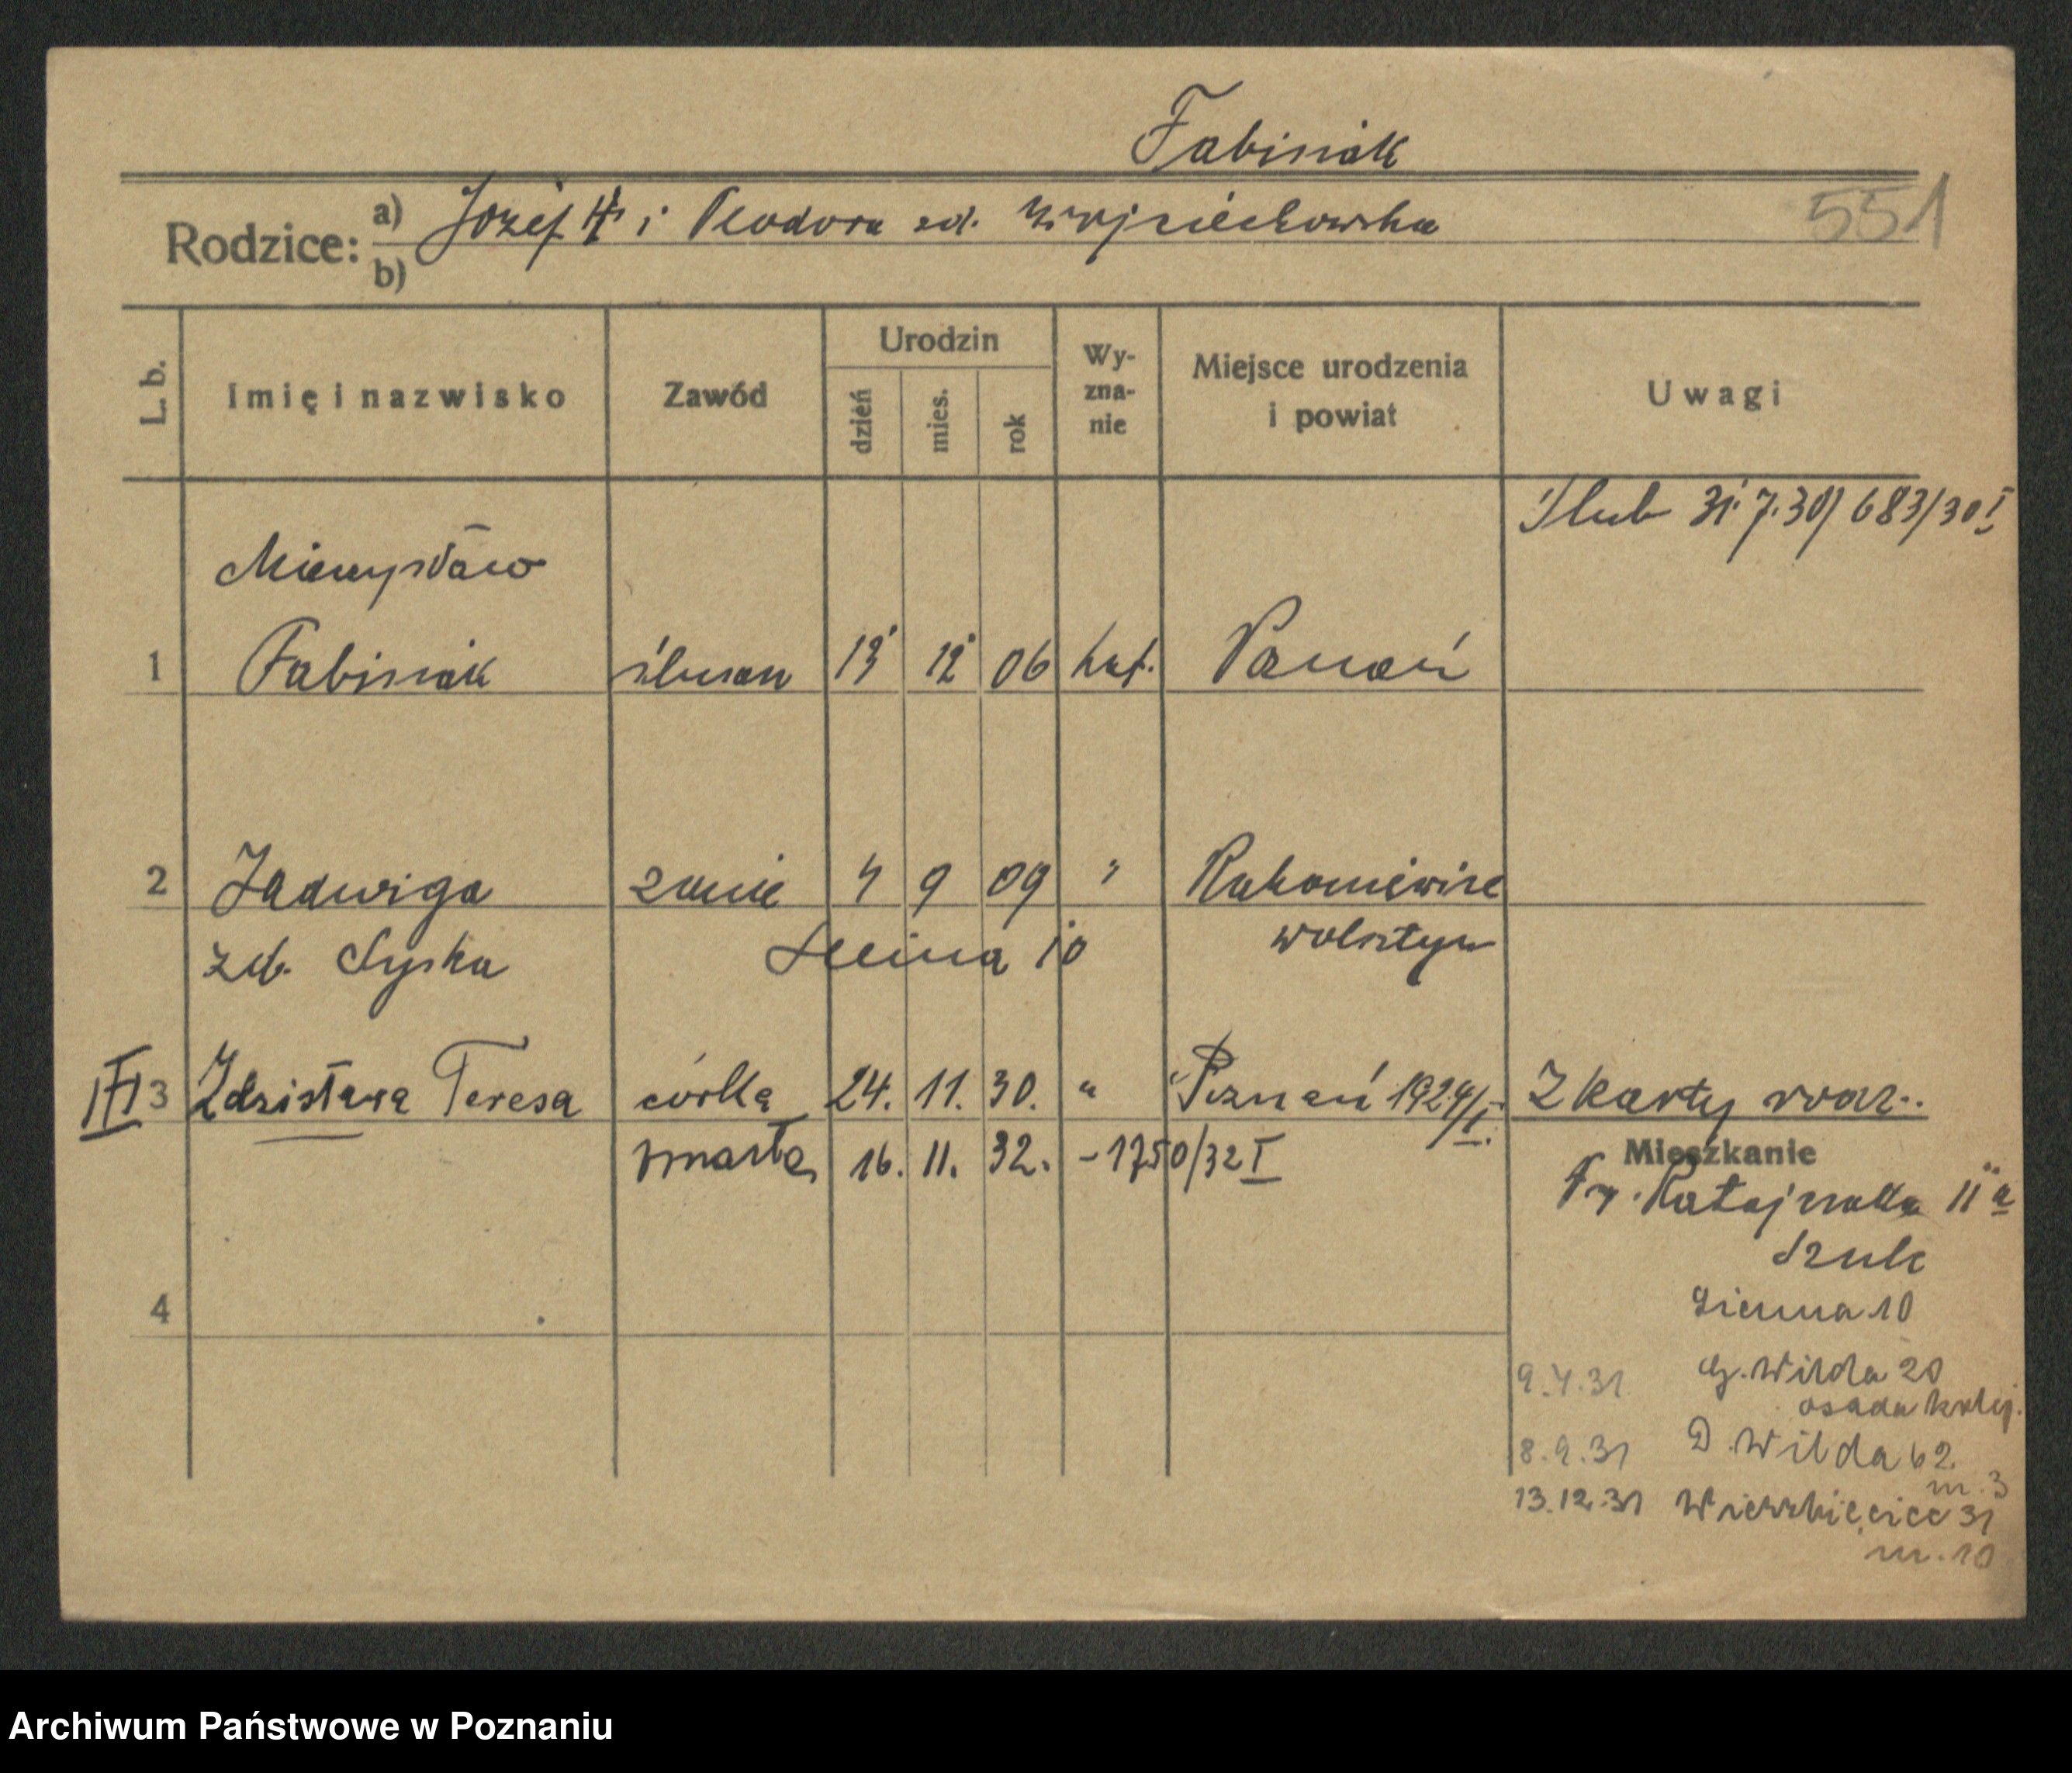 Fabisiak
Rodzice: a) Józef i Teodora zd. Wojciechowska
b)
551
L. b.
Imię i nazwisko
Zawód
Urodzin
dzień
mies.
rok
Wy-
zna-
nie
Miejsce urodzenia
i powiat
Uwagi
Ślub 31.7.30 / 683/30 I
Mieczysław
1 Fabisiak ślusarz 13 12 06 kat. Poznań
2 Jadwiga żonie 4 9 09 " Rakoniewice
zd. Syska 10 Wolsztyn
III 3 Zdzisława Teresa córka 24. 11. 30. " Poznań 1924/I. Z karty
zmarła 16. 11. 32. - 1750/32 I
Mieszkanie
Fr. Ratajczaka 11a
Szulc
Sienna 10
4
9.4.31 G. Wilda 20
osada kolej.
8.9.31 D. Wilda 62
m. 3
13.12.31 Wierzbięcice 31
m. 10
Archiwum Państwowe w Poznaniu